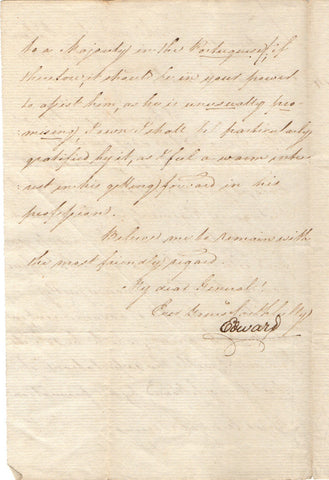 to a Majority in the Portuguese, if
therefore, it should be in your power
to assist him, as he is unusually pro-
mising, I own I shall be particularly
gratified by it, as I feel a warm inte-
rest in his getting forward in his
profession.
Believe me to remain with
the most friendly regard
My dear General!
Ever Yours faithfully
Edward